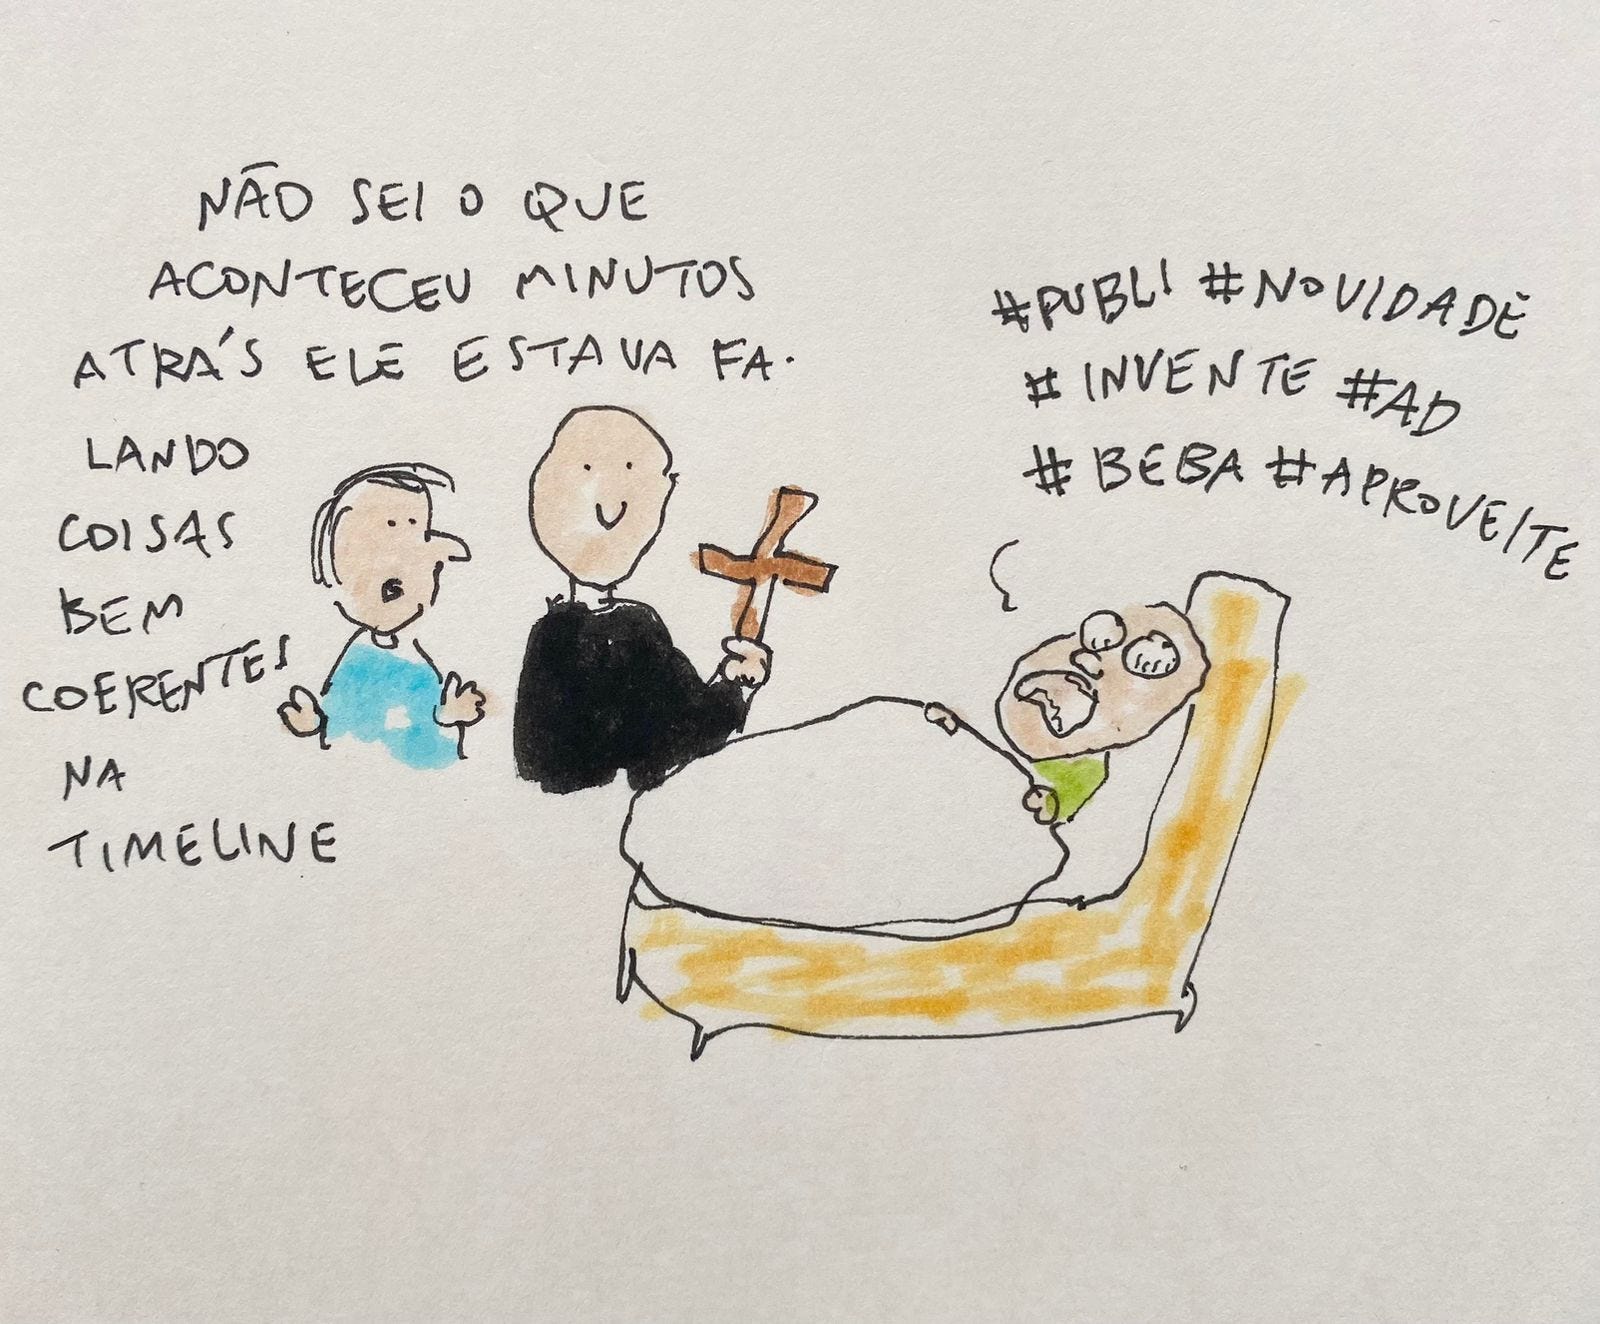 NÃO SEI O QUE
ACONTECEU MINUTOS
ATRÁS ELE ESTAVA FA.
LANDO
COISAS
BEM
COERENTES
NA
TIMELINE
#PUBLI #NOVIDADE
#INVENTE #AD
#BEBA #APROVEITE